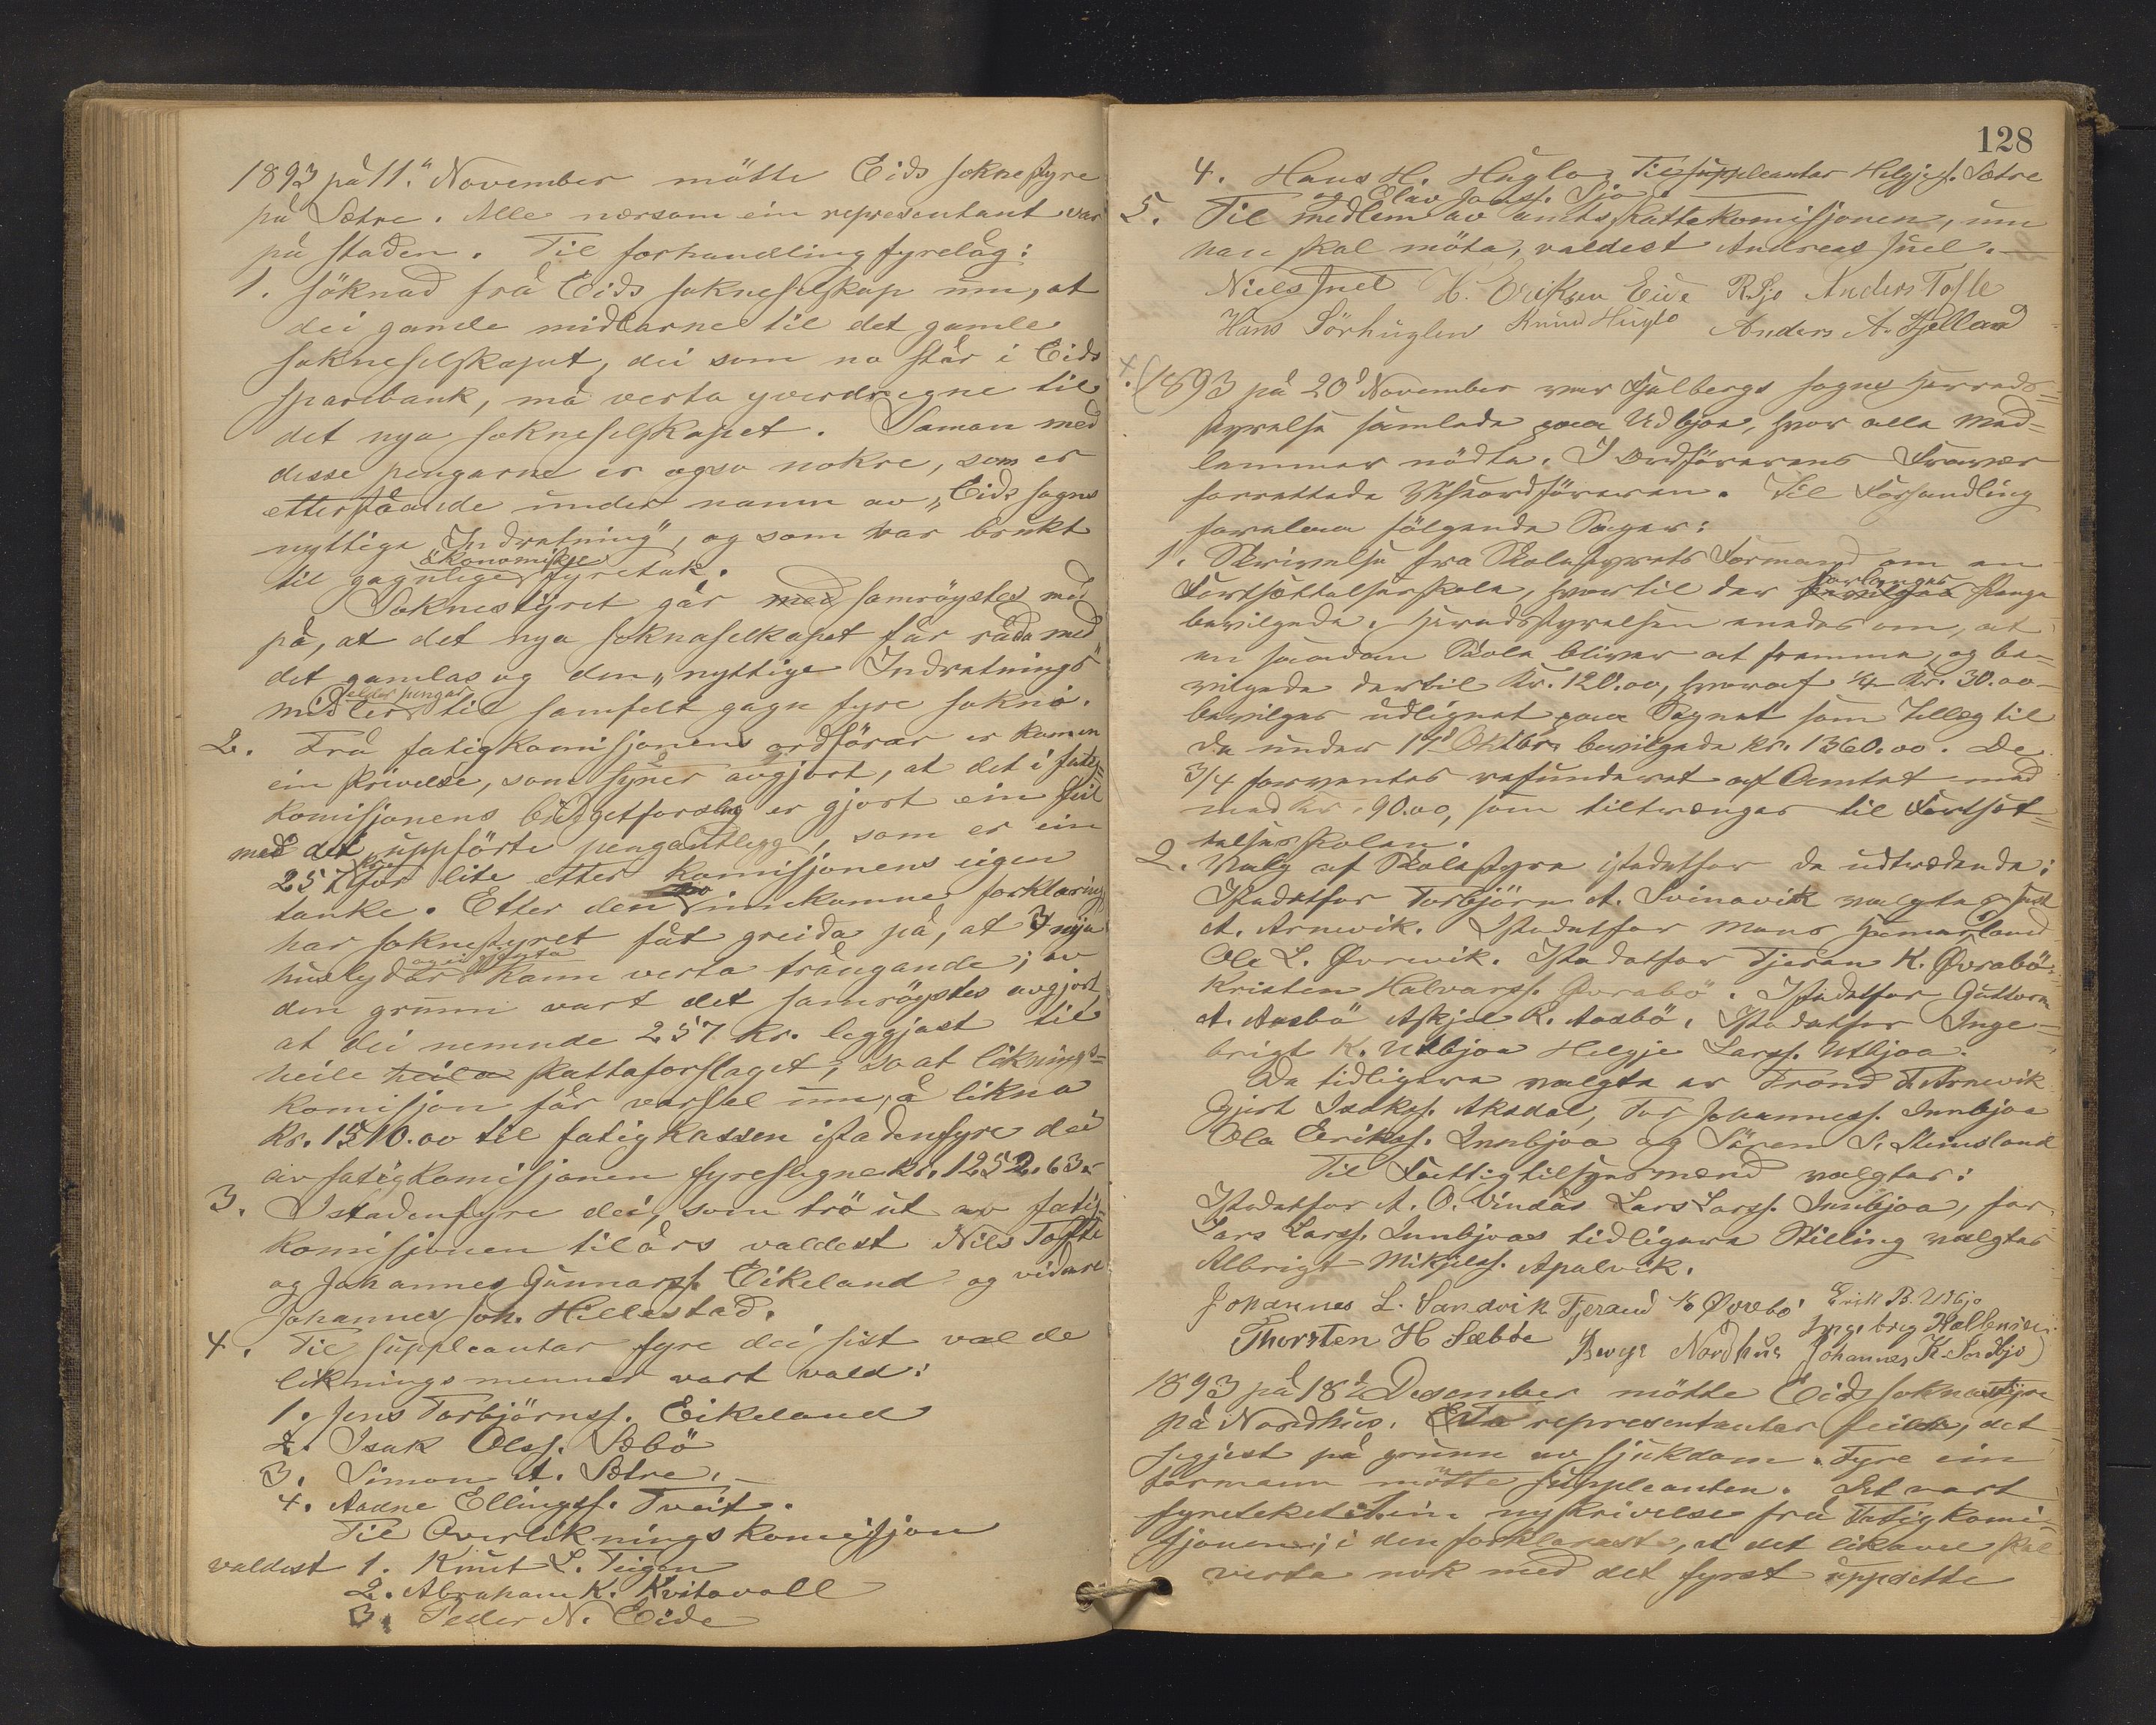 1893 på 11. November mötte Eids soknestyre
på Sætre. Alle nærsom ein representant var
på staden. Til forhandling fyrelåg:
1. söknad frå Eids sokneselskap um, at
dei gamle midlarne til det gamle
sokneselskaput, dei som no står i Eids
sparebank, må verta yverdregne til
det nya sokneselskapet. Saman med
disse pengarne er ogso nokre, som er
etterståande under namn av "Eids sogns
nyttige Indretning", og som var brukt
til gagnlige ökonomiske fyretak.
Soknestyret går med samröystes med
på, at det nya soknaselkapet får råda med
det gamlas og den "nyttige Indretnings"
midler elder pengar til samfelt gagn fyre sokni.
2. Frå fatigkomisjonens ordförar er komen
ein skrivelse, som syner avgjort, at det i fatig=
komisjonens budgetforslag er gjort ein feil
med det uppförte pengautlegg, som er ein
257 kr. for lite etter komisjonens eigen
tanke. Etter den innekomne forklaring
har soknestyret fåt greida på, at 3 nya
huslydar kann verta trångande; av
den grunn vart det samröystes avgjort
at dei nemnde 257 kr. leggjast til
heile heila skattaforslaget, so at liknings=
komisjon får varsel um, å likna
kr. 1510.00 til fatigkassen istadenfyre dei
av fatigkomisjonen fyreslegne kr. 1252.63.
3. Istadenfyre dei, som trö ut av fatig=
komisjonen tilårs valdest Nils Tofte
og Johannes Gunnarss. Eikeland og vidare
Johannes Joh. Hillestad.
4. Til suppleantar fyre dei sist valde
likningsmenner vart vald:
1. Jens Torbjörnss. Eikeland
2. Isak Olss. Sæbö
3. Simon A. Sætre.
4. Aadne Ellingss. Tveit.
Til Overlikningskomisjon
valdest 1. Knut L. Teigen
2. Abraham K. Kvitavoll
3. Peder N. Eide
128
4. Hans H. Huglo. Til suppleantar Helgje S. Sætre
og Olav Jonss. Sjo
5. Til medlem av amtsskattekomisjonen, um
nan skal möta, valdest Andreas Juel.
Niels Juel H. Eriksen Eide R. Sjo Anders Tofte
Hans Sörhuglen Knud Huglo Anders A. Fjelland
1893 på 20d November var Fjelbergs sogns Herreds=
styrelse samlede paa Udbjoa, hvor alle Med=
lemmer mödte. I Ordförerens Fravær
forrettede Viseordföreren. Til Forhandling
forelaa fölgende Sager:
1. Skrivelse fra Skolestyrets Formand om en
Fortsættelsesskole, hvortil der forlanges Penge
bevilgede. Herredsstyrelsen enedes om, at
en saadan Skole bliver at fremme, og be=
vilgede dertil kr. 120.00, hvoraf 1/4 kr. 30.00
bevilges udlignet paa Sognet som Tillæg til
de under 17d Oktbr. bevilgede kr. 1360.00. De
3/4 forventes refunderet af Amtet med
med kr. 90.00, som tiltrænges til Fortsæt=
telsesskolen.
2. Valg af Skolestyre istedetfor de udtrædende:
Istedetfor Torbjörn A. Svinavik valgtes
A. Arnevik. Istedetfor Mons Hamarland
Ole L. Øvrevik. Istedetfor Tjeran K. Øvrabö
Kristen Halvorss. Øvrabö. Istedetfor Guttorm
A. Aasbö Askjel K. Aasbö. Istedetfor Inge=
brigt K. Utbjoa Helgje Larss. Utbjoa.
De tidligere valgte er Trond T. Arnevik
Gjert Isakss. Aksdal, Tor Johanness. Innbjoa
Ola Erikss. Innbjoa og Sören S. Steinsland
Til Fattigtilsynsmænd valgtes:
Istedetfor A. O. Vindås Lars Larss. Innbjoa, for
Lars Larss. Innbjoas tidligere Stilling valgtes
Albrigt Mikjelss. Apalvik.
Johannes L. Sandvik Tjerand K. Øvrebö Erik B. Utbjo
Thorsten H Sæböe Børge Nordhus Ingebrig Halvorsen
Johannes K.
1893 på 18d Desember mötte Eids soknestyre
på Nordhus. representantar feilte, det
segjest på grunn av sjukdom. Fyre ein
formann mötte suppleanten. Det vart
fyreteket ein ny skrivelse frå Fatigkomi=
sjonen; i den forklarast, at det likevel skal
verta nok med det fyrst uppsette